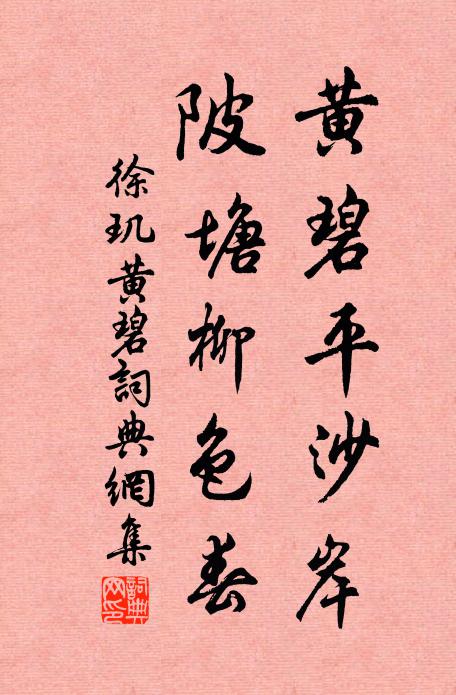 黄碧平沙岸
陂塘柳色春
徐玑黄碧詞典網集
詞典网印